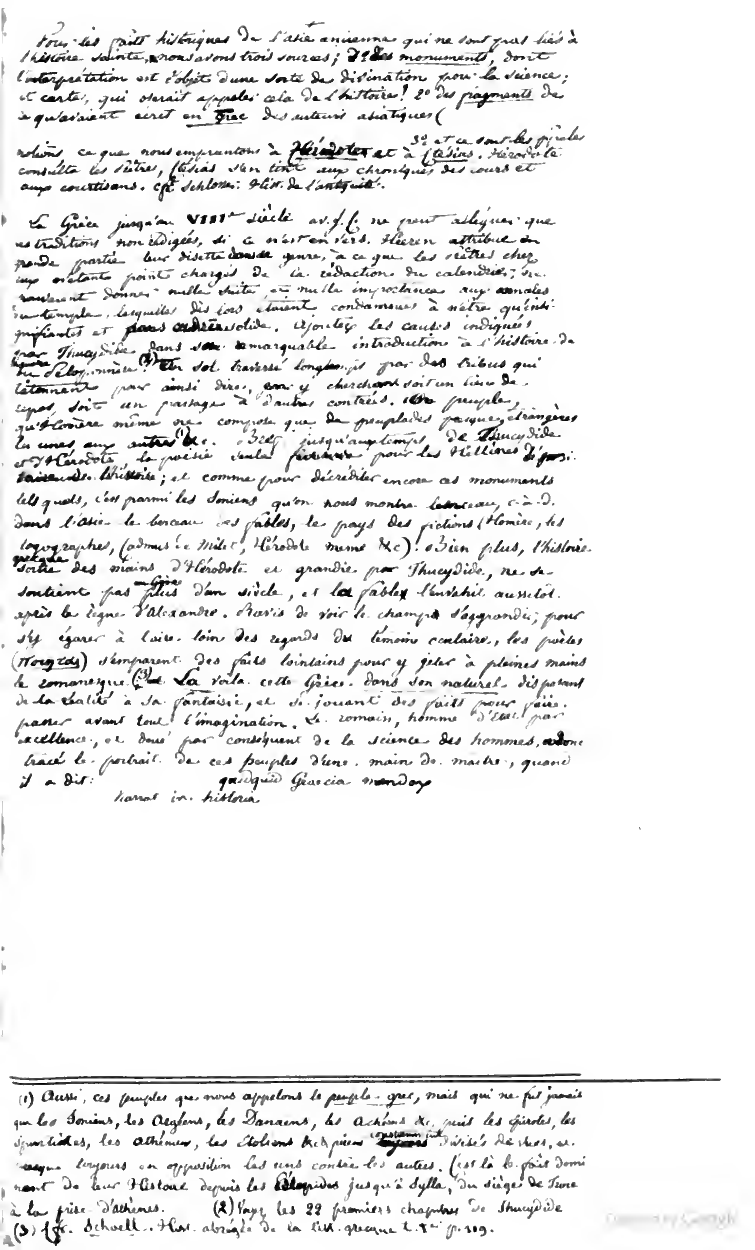 Pour les faits historiques de l'asie ancienne qui ne sont pas liés à
l'histoire sainte, nous avons trois sources; 1º des monuments, dont
l'interprétation est l'objet d'une sorte de divination pour la science;
et certe, qui oserait appeler cela de l'histoire! 2º des fragments de
ce qu'avaient écrit en grec des auteurs asiatiques (
3º et ce sont les
notions ce que nous empruntons à Hérodote et à Ctésias. Hérodote
consulta les prêtres, Ctésias s'en tint aux chroniques des cours et
aux courtisans. cf. Schlosser. Hist. de l'antiquité.
La Grèce jusqu'au VIIIe siècle av. J. C. ne peut alléguer que
des traditions non rédigées, si ce n'est en vers. Heeren attribue en
grande partie leur disette dans ce genre, à ce que les prêtres chez
eux n'étant point chargés de la rédaction du calendrier, ne
pouvaient donner nulle suite et nulle importance aux annales
du temple, lesquelles dès lors étaient condamnées à n'être qu'insi-
gnifiantes et peu solide. Ajoutez les causes indiquées
par Thucydide dans son remarquable introduction à l'histoire de
la guerre du Péloponnèse (2) Un sol traversé longtemps par des tribus qui
pour ainsi dire, en y cherchant soit un lieu de
repos, soit un passage à d'autres contrées. Un peuple,
qu'Homère même ne compose que de peuplades presque étrangères
les unes aux autres (1) &c. Bref jusqu'aux temps de Thucydide
et d'Hérodote la poésie seule pour les Hellènes
l'histoire; et comme pour décréditer encore ces monuments
tels quels, c'est parmi les Ioniens qu'on nous montre leur berceau, c-à-d.
dans l'asie le berceau des fables, le pays des fictions (Homère, les
logographes, Cadmus de Milet, Hérodote meme &c). Bien plus, l'histoire
grecque sortie des mains d'Hérodote et grandie par Thucydide, ne se
soutient pas en Grèce plus d'un siècle, et la fable l'envahit aussitôt
après le règne d'Alexandre. Ravis de voir le champ s'aggrandir, pour
s'y égarer à loisir loin des regards du témoin oculaire, les poètes
(Ποιηται) s'emparent des faits lointains pour y jeter à pleines mains
le romanesque (3) La voila cette Grèce dans son naturel disposant
de la réalité à sa fantaisie, et se jouant des faits pour faire
passer avant tout l'imagination. Le romain, homme d'état par
excellence, et doué par conséquent de la science des hommes, a donc
tracé le portrait de ces peuples d'une main de maitre, quand
il a dit: quidquid Graecia mendax
narrat in historia
(1) Aussi, ces peuples que nous appelons le peuple grec, mais qui ne fut jamais
que les Ioniens, les Argiens, les Danaens, les Achéens &c, puis les Epirotes, les
Spartiates, les Athéniens, les Etoliens &c furent constamment divisés de vues, et
presque toujours en opposition les uns contre les autres. C'est là le fait domi
nant de leur Histoire depuis les Pélopides jusqu'à Sylla, du siège de Troie
à la prise d'athènes. (2) Voyez les 22 premiers chapitres de Thucydide
(3) Cfr. Schoell. Hist. abrégée de la litt. grecque t. 1er p. 209.